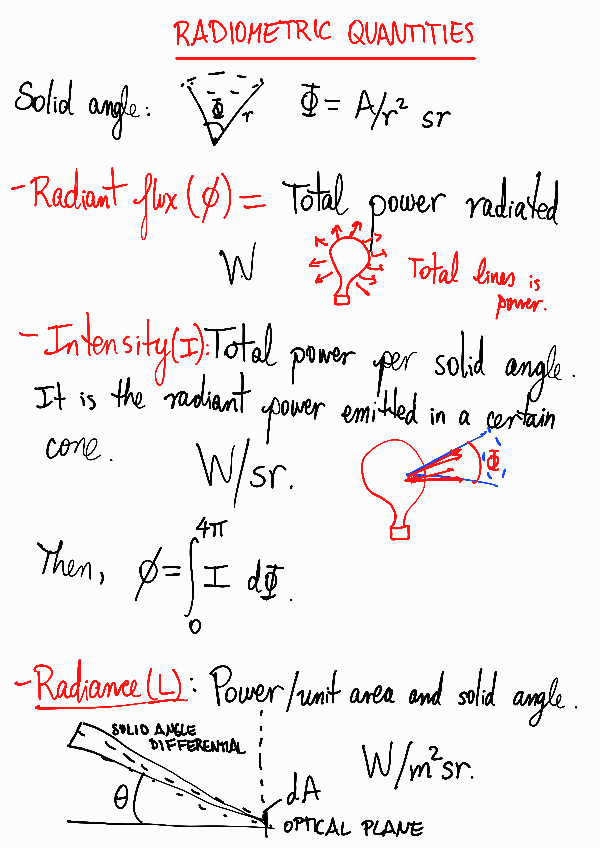 RADIOMETRIC QUANTITIES
Solid angle: Φ r Φ = A/r² sr
- Radiant flux (ϕ) = Total power radiated
W
Total lines is
power.
- Intensity (I): Total power per solid angle.
It is the radiant power emitted in a certain
cone.
W/sr.
Φ
Then, ϕ = ∫₀^4π I dΦ.
- Radiance (L): Power/unit area and solid angle.
SOLID ANGLE
DIFFERENTIAL
W/m²sr.
θ
dA
OPTICAL PLANE